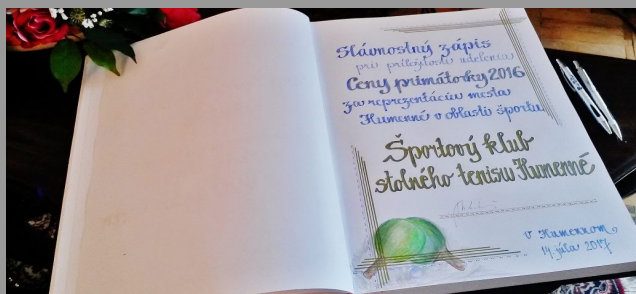 Slávnostný zápis
pri príležitosti udelenia
Ceny primátorky 2016
za reprezentáciu mesta
Humenné v oblasti športu
Športový klub
stolného tenisu Humenné
V Humennom,
14. júla 2017